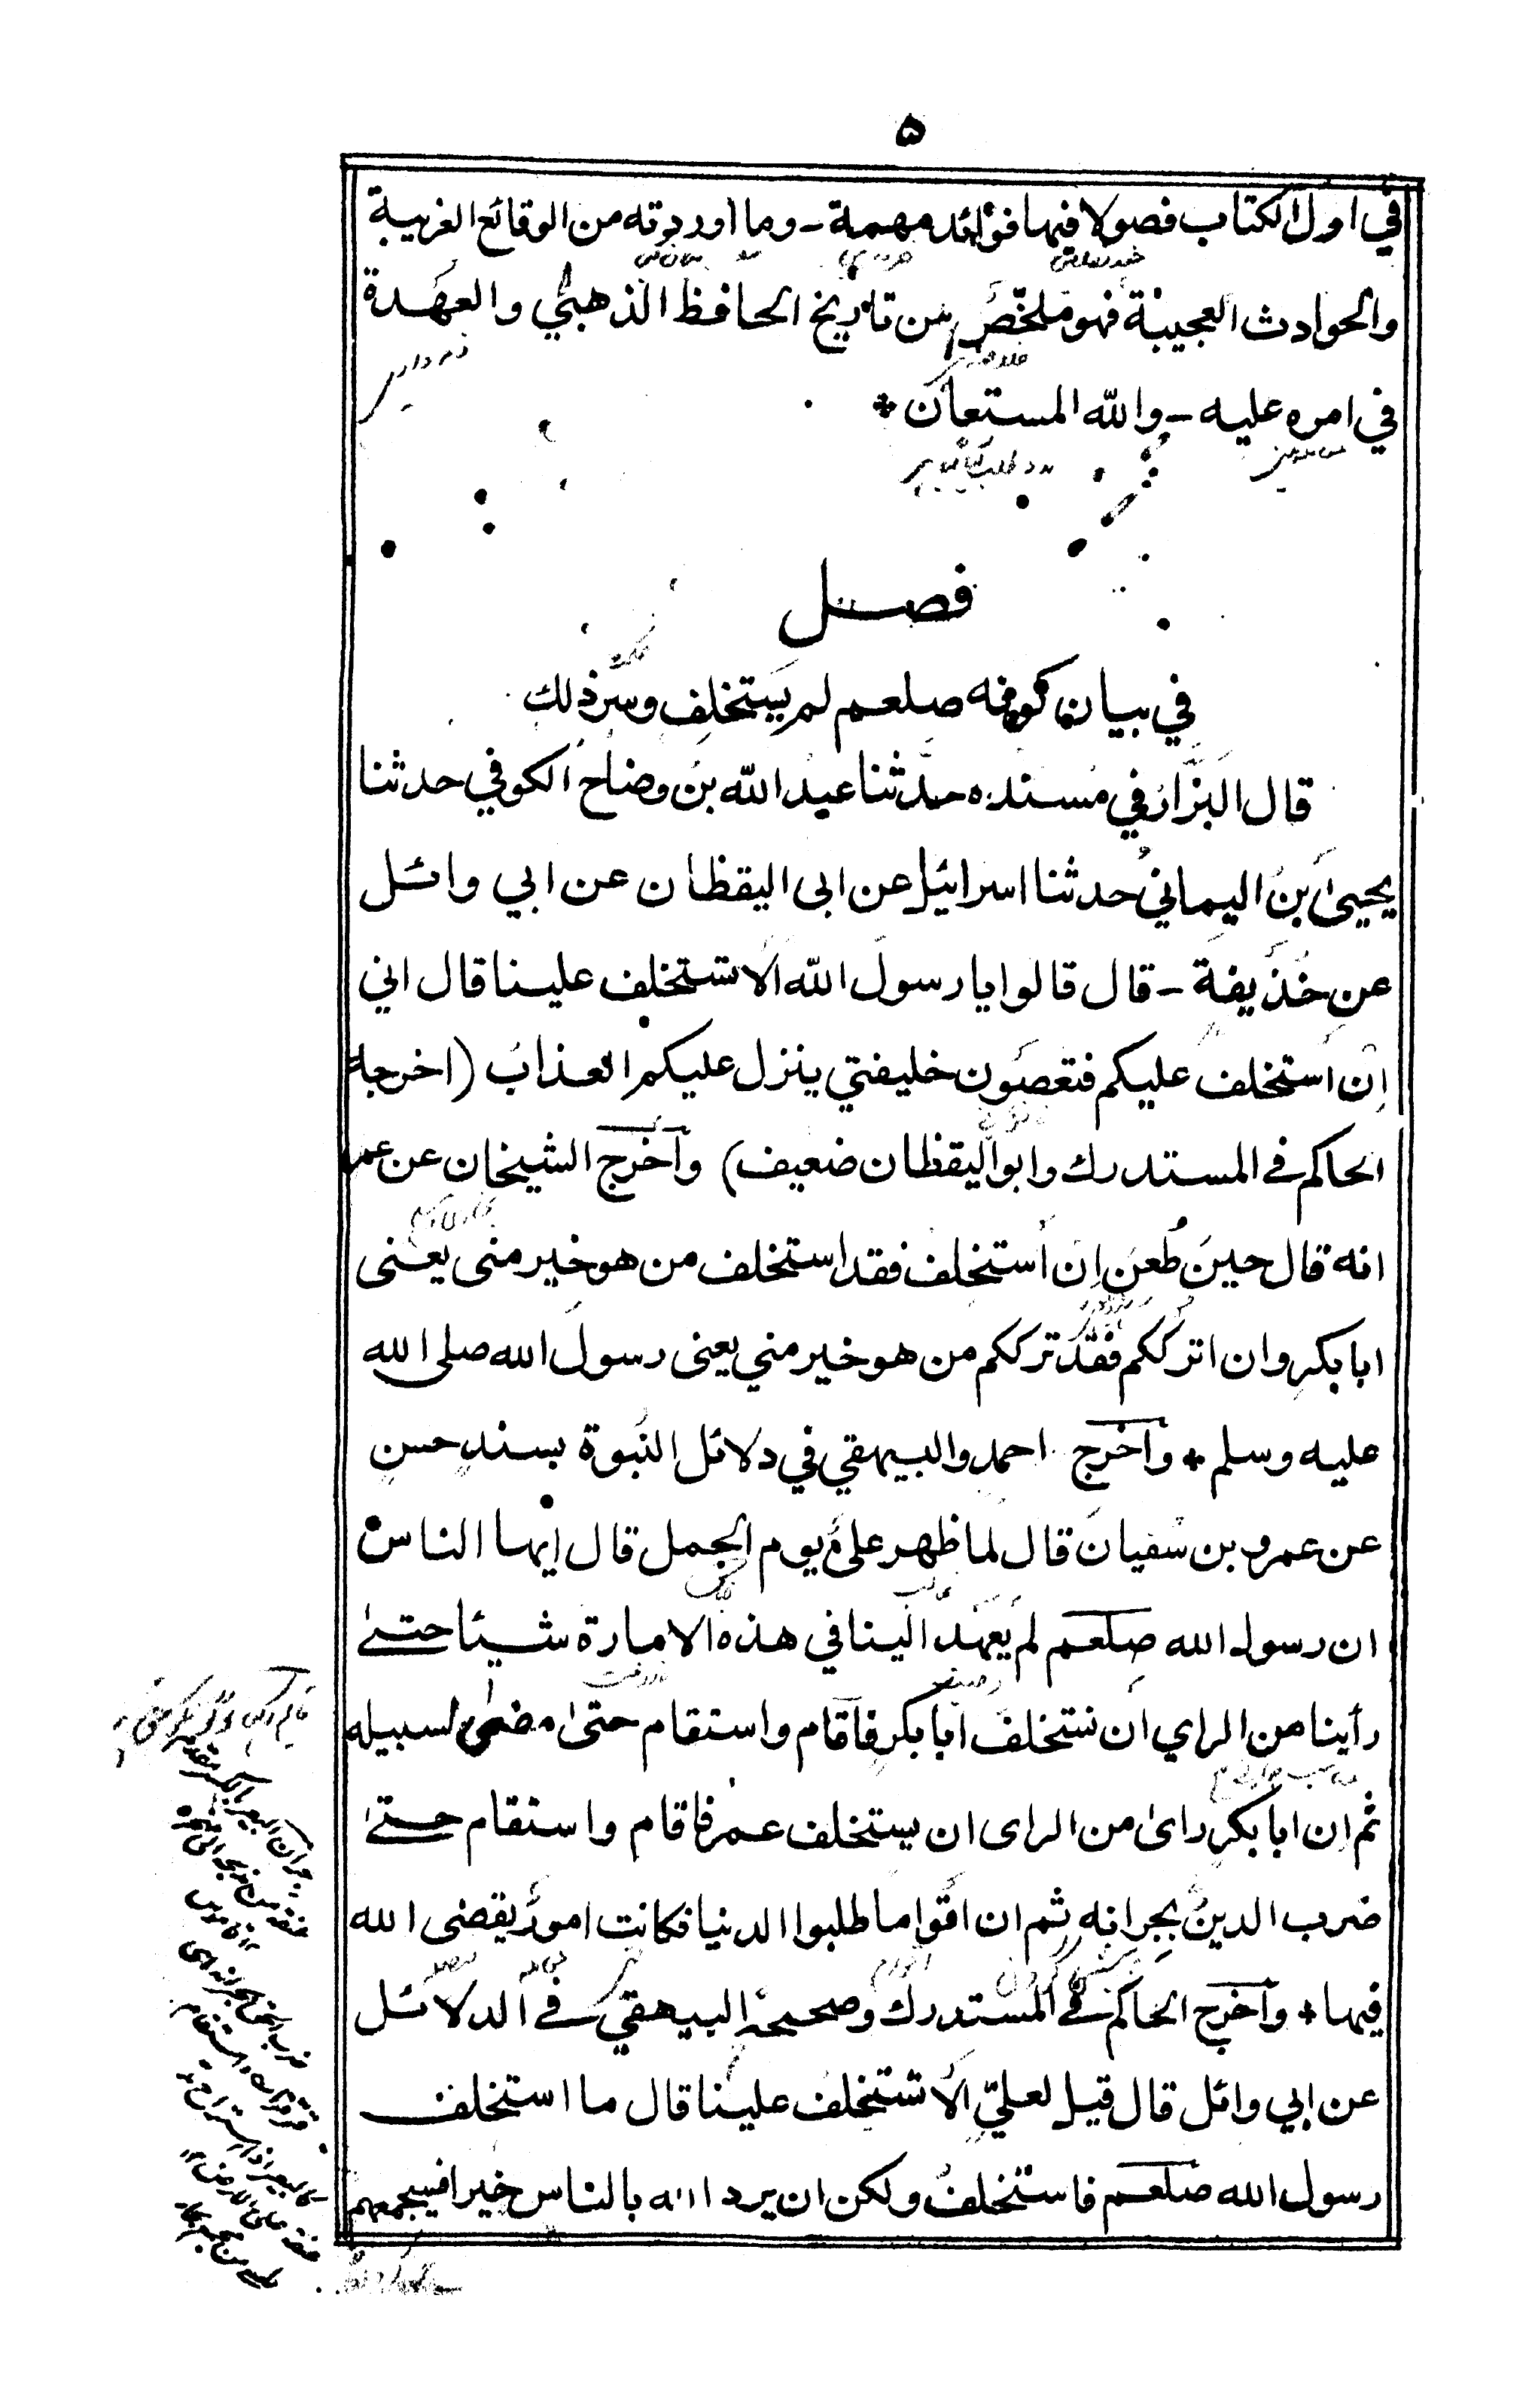 ۵
في اول الكتاب فصولا فيها فوائد مهمة - وما اوردته من الوقائع الغريبة
والحوادث العجيبة فهو ملخّص من تاريخ الحافظ الذهبي والعهدة
في امره عليه - والله المستعان *
فصل
في بيان كونه صلعم لم يستخلف وسر ذلك
قال البزار في مسنده حدثنا عبد الله بن وضاح الكوفي حدثنا
يحيى بن اليماني حدثنا اسرائيل عن ابى اليقظان عن ابي وائل
عن حذيفة - قال قالوا يا رسول الله الا تستخلف علينا قال اني
ان استخلف عليكم فتعصون خليفتي ينزل عليكم العذاب (اخرجه
الحاكم في المستدرك وابو اليقظان ضعيف) وأخرج الشيخان عن عمر
انه قال حين طُعن اِن اَستخلف فقد استخلف من هو خير منى يعنى
ابا بكر وان اترككم فقد ترككم من هو خير مني يعنى رسول الله صلى الله
عليه وسلم * وأخرج احمد والبيهقي في دلائل النبوة بسند حسن
عن عمرو بن سفيان قال لما ظهر على يوم الجمل قال ايها الناس
ان رسول الله صلعم لم يعهد الينا في هذه الامارة شيئا حتى
رأينا من الراي ان نستخلف ابا بكر فاقام واستقام حتى مضى لسبيله
ثم ان ابا بكر راى من الراى ان يستخلف عمر فاقام واستقام حتى
ضرب الدين بجرانه ثم ان اقواما طلبوا الدنيا فكانت امور يقضى الله
فيها * وأخرج الحاكم في المستدرك وصححه البيهقي في الدلائل
عن ابي وائل قال قيل لعليّ الا تستخلف علينا قال ما استخلف
رسول الله صلعم فاستخلف ولكن ان يرد الله بالناس خيرا فسيجمعهم